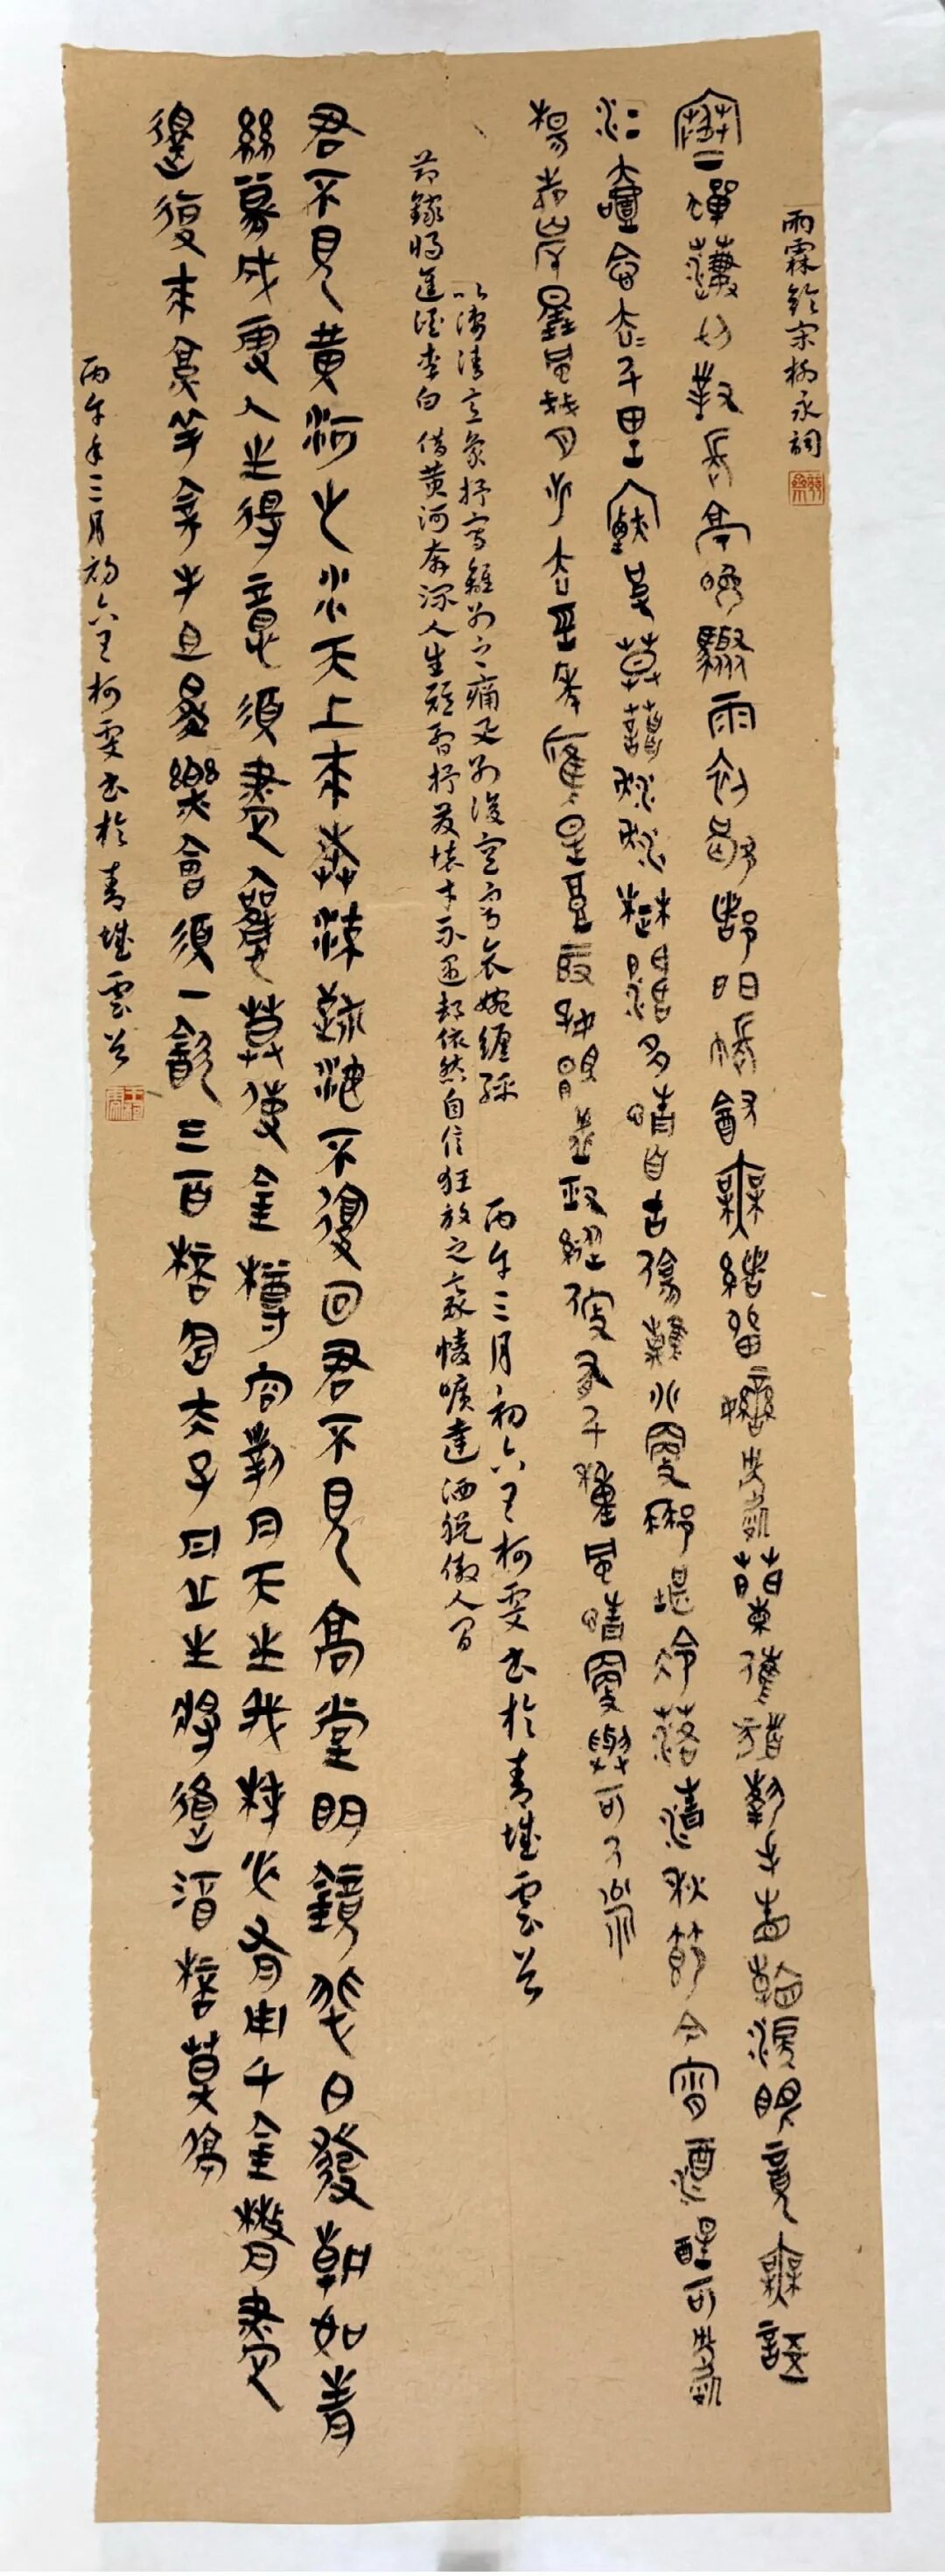 雨霖鈴宋柳永詞
寒蟬淒切對長亭晚驟雨初歇都門帳飲無緒留戀處蘭舟催發執手相看淚眼竟無語
凝噎念去去千里煙波暮靄沉沉楚天闊多情自古傷離別更那堪冷落清秋節今宵酒醒何處
楊柳岸曉風殘月此去經年應是良辰好景虛設便縱有千種風情更與何人說
以淒清意象抒寫離別之痛及別後空寂哀婉纏綿 丙午三月初六王柯雯書於青城雲谷
節錄將進酒李白 借黃河奔流人生短暫抒發懷才不遇卻依然自信狂放之豪情曠達灑脫傲人間
君不見黃河之水天上來奔流到海不復回君不見高堂明鏡悲白髮朝如青
絲暮成雪人生得意須盡歡莫使金樽空對月天生我材必有用千金散盡
還復來烹羊宰牛且為樂會須一飲三百杯岑夫子丹丘生將進酒杯莫停
丙午年三月初六王柯雯書於青城雲谷